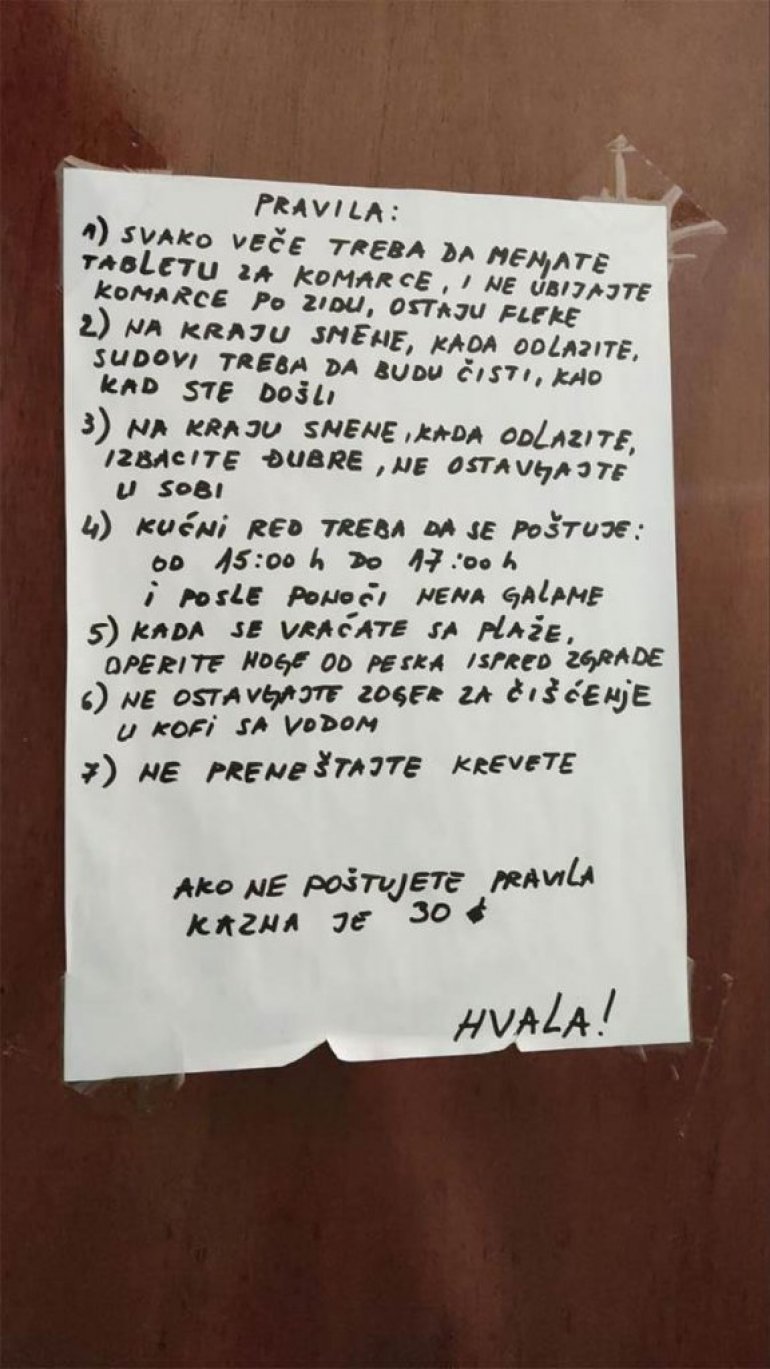 PRAVILA:
1) SVAKO VEČE TREBA DA MENJATE
TABLETU ZA KOMARCE, I NE UBIJAJTE
KOMARCE PO ZIDU, OSTAJU FLEKE
2) NA KRAJU SMENE, KADA ODLAZITE,
SUDOVI TREBA DA BUDU ČISTI, KAO
KAD STE DOŠLI
3) NA KRAJU SMENE, KADA ODLAZITE,
IZBACITE ĐUBRE, NE OSTAVLJAJTE
U SOBI
4) KUĆNI RED TREBA DA SE POŠTUJE:
OD 15:00 h DO 17:00 h
i POSLE PONOĆI NEMA GALAME
5) KADA SE VRAĆATE SA PLAŽE,
OPERITE NOGE OD PESKA ISPRED ZGRADE
6) NE OSTAVLJAJTE ZOGER ZA ČIŠĆENJE
U KOFI SA VODOM
7) NE PREMEŠTAJTE KREVETE
AKO NE POŠTUJETE PRAVILA
KAZNA JE 30 €
HVALA!